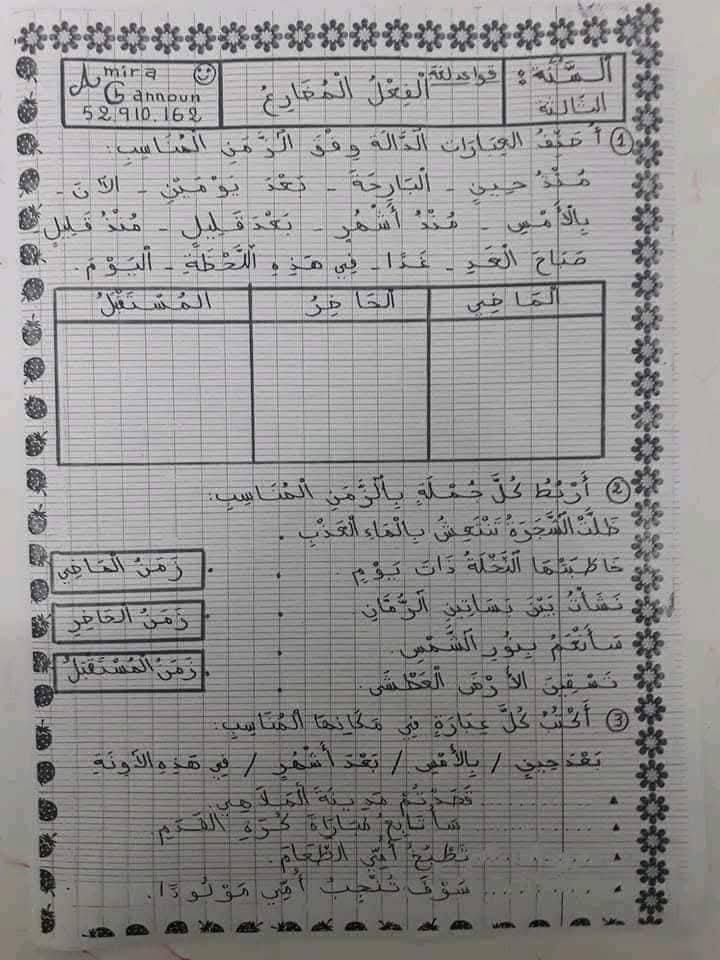 السَّنَة: الثالثة
قواعد لغة الْفِعْلُ الْمُضَارِعُ
Amira Gannoun 52.910.162
① أُصَنِّفُ العِبَارَاتِ الدَّالَّةَ وِفْقَ الزَّمَنِ الْمُنَاسِبِ:
مُنْذُ حِينٍ - الْبَارِحَةَ - بَعْدَ يَوْمَيْنِ - الآنَ -
بِالأَمْسِ - مُنْذُ أَشْهُرٍ - بَعْدَ قَلِيلٍ - مُنْذُ قَلِيلٍ -
صَبَاحَ الْغَدِ - غَدًا - فِي هَذِهِ اللَّحْظَةِ - الْيَوْمَ.
الْمَاضِي الْحَاضِرُ الْمُسْتَقْبَلُ
② أَرْبُطُ كُلَّ جُمْلَةٍ بِالزَّمَنِ الْمُنَاسِبِ:
ظَلَّتْ الشَّجَرَةُ تَنْتَعِشُ بِالْمَاءِ الْعَذْبِ .
خَاطَبَتْهَا النَّخْلَةُ ذَاتَ يَوْمٍ . . زَمَنُ الْمَاضِي
نَشَأْتُ بَيْنَ بَسَاتِينِ الرُّمَّانِ . . زَمَنُ الْحَاضِرِ
سَأَنْعَمُ بِنُورِ الشَّمْسِ. .
تَسْقِينَ الأَرْضَ الْعَطْشَى . . زَمَنُ الْمُسْتَقْبَلُ
③ أَكْتُبُ كُلَّ عِبَارَةٍ فِي مَكَانِهَا الْمُنَاسِبِ:
بَعْدَ حِينٍ / بِالأَمْسِ / بَعْدَ أَشْهُرٍ / فِي هَذِهِ الآونَةِ
.......... قَصَدْتُمْ مَدِينَةَ الْمَلَاهِي.
.......... سَأُتَابِعُ مُبَارَاةَ كُرَةِ القَدَمِ.
.......... تَطْبُخُ أُمِّي الطَّعَامَ.
.......... سَوْفَ تُنْجِبُ أُمِّي مَوْلُودًا.